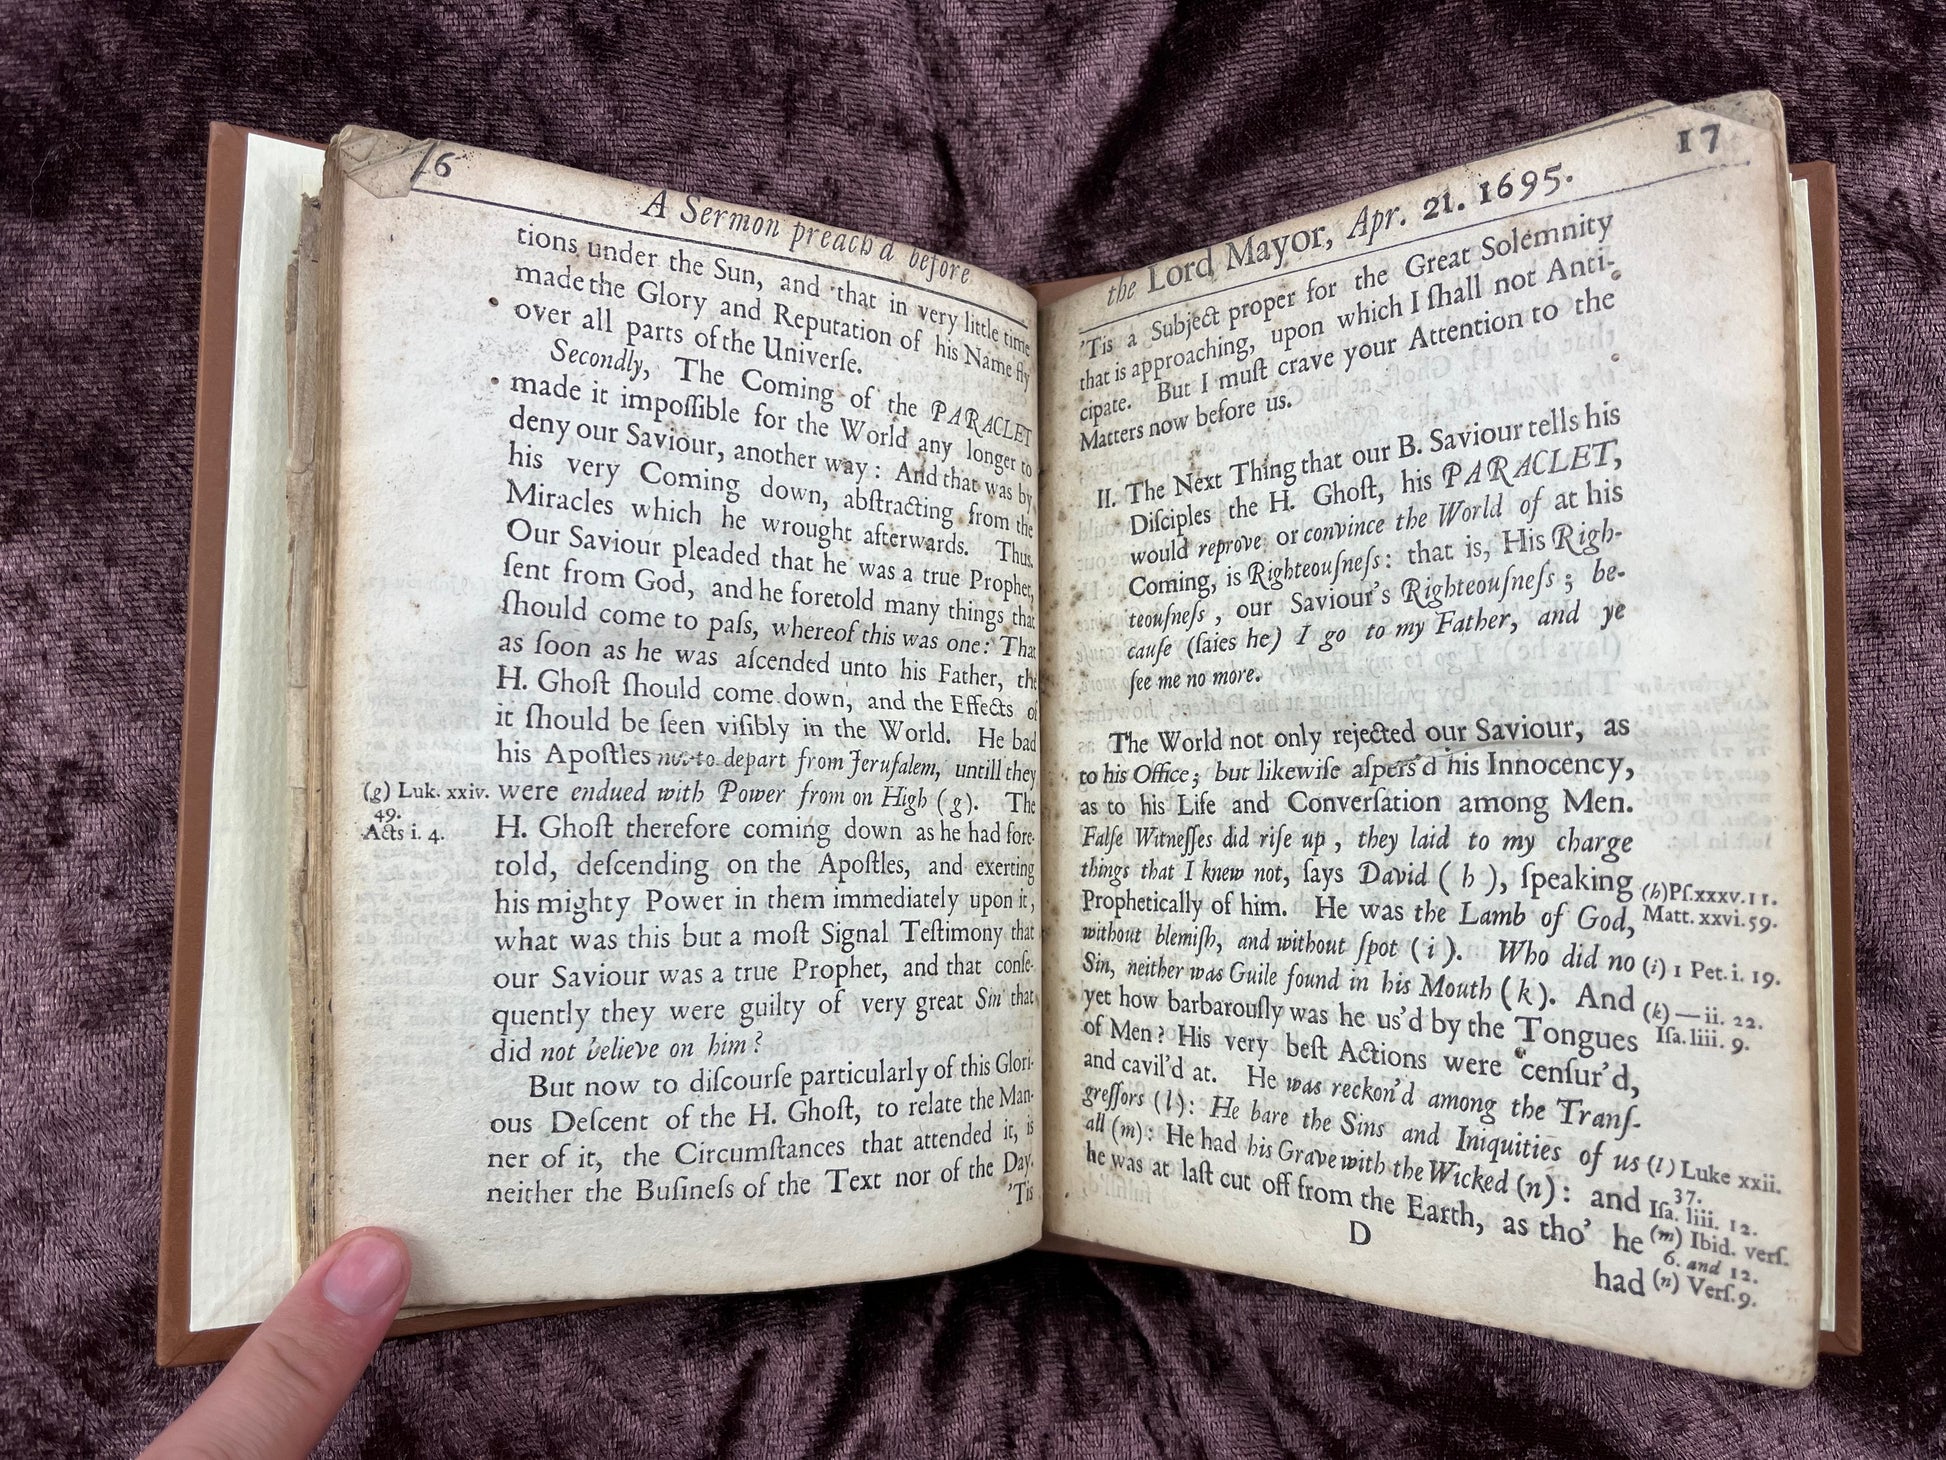 16
A Sermon preach'd before
tions under the Sun, and that in very little time
made the Glory and Reputation of his Name fly
over all parts of the Univerſe.
Secondly, The Coming of the PARACLET
made it impoſſible for the World any longer to
deny our Saviour, another way: And that was by
his very Coming down, abſtracting from the
Miracles which he wrought afterwards. Thus
Our Saviour pleaded that he was a true Prophet,
ſent from God, and he foretold many things that
ſhould come to paſs, whereof this was one: That
as ſoon as he was aſcended unto his Father, the
H. Ghoſt ſhould come down, and the Effects of
it ſhould be ſeen viſibly in the World. He bad
his Apoſtles not to depart from Jeruſalem, untill they
were endued with Power from on High (g). The
H. Ghoſt therefore coming down as he had fore-
told, deſcending on the Apoſtles, and exerting
his mighty Power in them immediately upon it,
what was this but a moſt Signal Teſtimony that
our Saviour was a true Prophet, and that conſe-
quently they were guilty of very great Sin that
did not believe on him?
But now to diſcourſe particularly of this Glori-
ous Deſcent of the H. Ghoſt, to relate the Man-
ner of it, the Circumſtances that attended it, is
neither the Buſineſs of the Text nor of the Day.
'Tis
(g) Luk. xxiv.
49.
Acts i. 4.
17
the Lord Mayor, Apr. 21. 1695.
'Tis a Subject proper for the Great Solemnity
that is approaching, upon which I ſhall not Anti-
cipate. But I muſt crave your Attention to the
Matters now before us.
II. The Next Thing that our B. Saviour tells his
Diſciples the H. Ghoſt, his PARACLET,
would reprove or convince the World of at his
Coming, is Righteouſneſs: that is, His Righ-
teouſneſs, our Saviour's Righteouſneſs; be-
cauſe (ſaies he) I go to my Father, and ye
ſee me no more.
The World not only rejected our Saviour, as
to his Office; but likewiſe aſpers'd his Innocency,
as to his Life and Converſation among Men.
Falſe Witneſſes did riſe up, they laid to my charge
things that I knew not, ſays David (h), ſpeaking
Prophetically of him. He was the Lamb of God,
without blemiſh, and without ſpot (i). Who did no
Sin, neither was Guile found in his Mouth (k). And
yet how barbarouſly was he us'd by the Tongues
of Men? His very beſt Actions were cenſur'd,
and cavil'd at. He was reckon'd among the Tranſ-
greſſors (l): He bare the Sins and Iniquities of us
all (m): He had his Grave with the Wicked (n): and
he was at laſt cut off from the Earth, as tho' he
D
had
(h) Pſ. xxxv. 11.
Matt. xxvi. 59.
(i) 1 Pet. i. 19.
(k) — ii. 22.
Iſa. liii. 9.
(l) Luke xxii.
37.
Iſa. liii. 12.
(m) Ibid. verſ.
6. and 12.
(n) Verſ. 9.